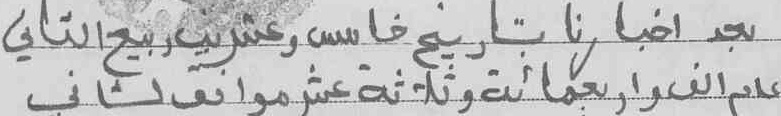 بعد اخبارنا بتاريخ خامس وعشرين ربيع الثاني
عام الف واربعمائة وثلاثة عشر موافق لثاني